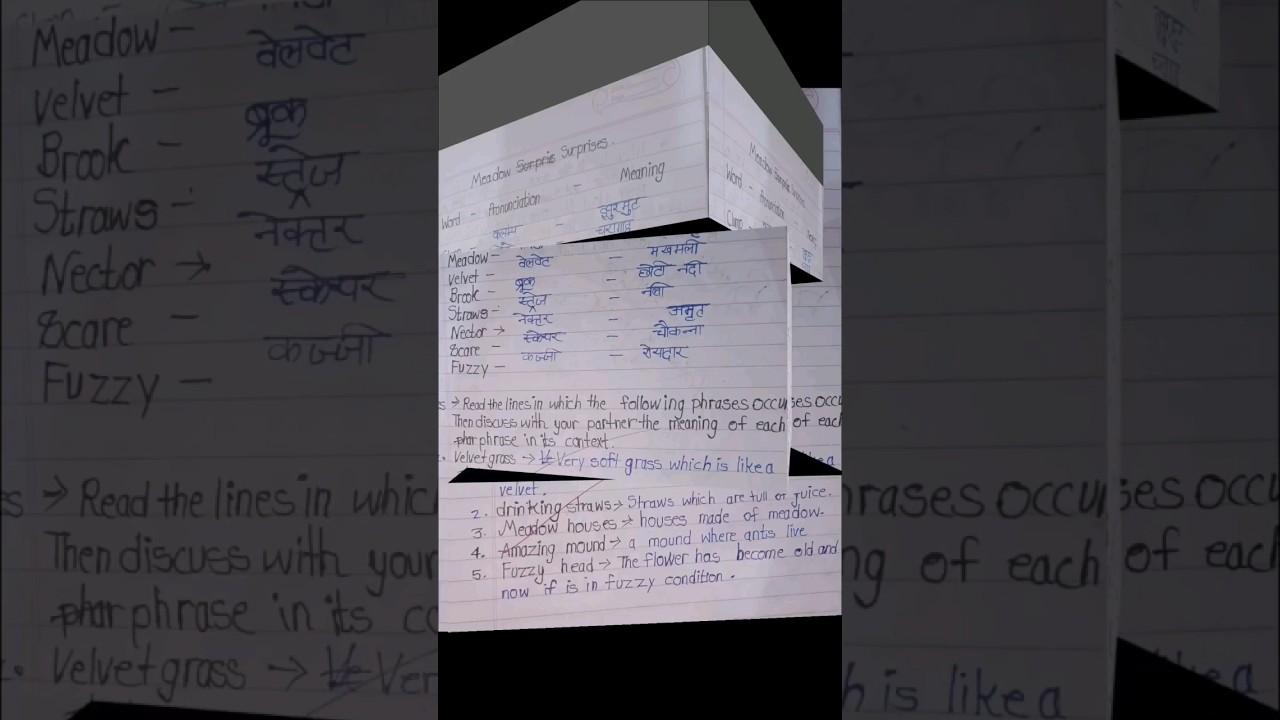 Meadow Surpris Surprises.
Word - Pronunciation - Meaning
क्लम्प - झुरमुट
चरागाह
Meadow - वेलवेट - मखमली
Velvet - ब्रूक - छोटी नदी
Brook - स्ट्रेज - नली
Straws - नेक्टर - अमृत
Nector → स्केयर - चौकन्ना
Scare - कज्जी - रोयदार
Fuzzy -
→ Read the lines in which the following phrases occur
Then discuss with your partner the meaning of each
phar phrase in its context.
Velvet grass → Ve Very soft grass which is like a
velvet.
2. drinking straws → Straws which are full of juice.
3. Meadow houses → houses made of meadow.
4. Amazing mound → a mound where ants live
5. Fuzzy head → The flower has become old and
now if is in fuzzy condition.